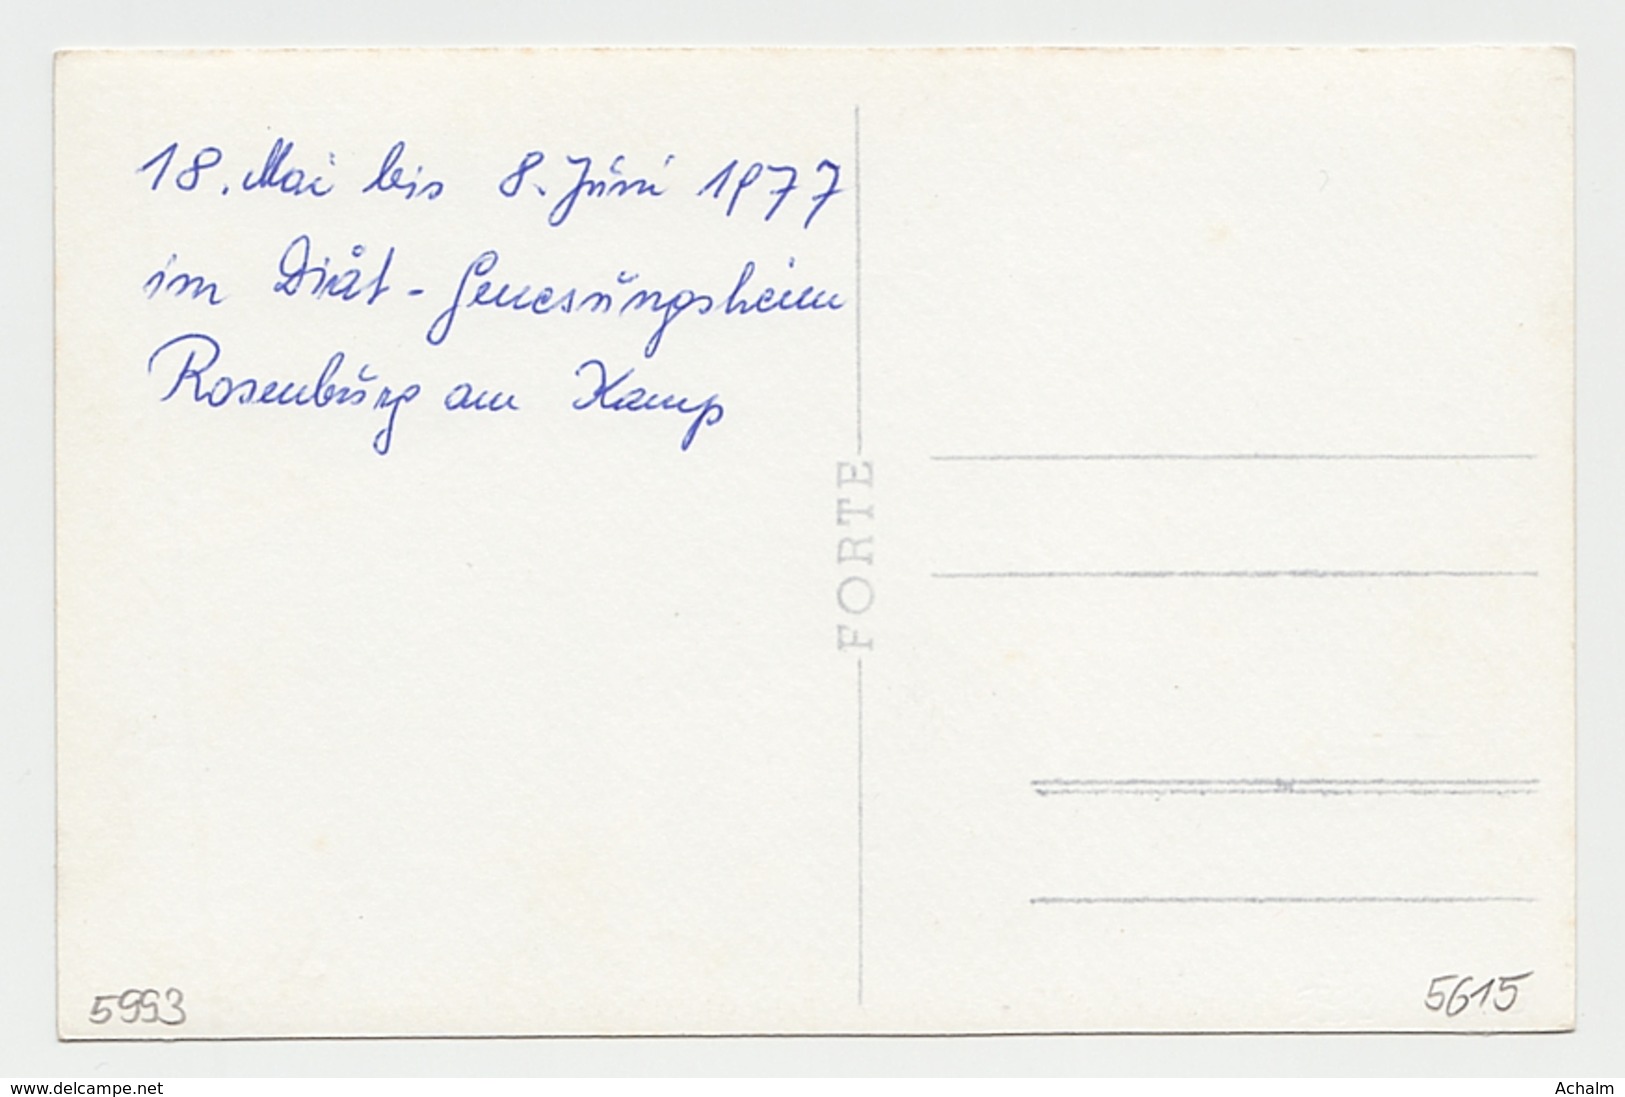 18. Mai bis 8. Juni 1977
im Diät-Genesungsheim
Rosenburg am Kamp
FORTE
5993
5615
www.delcampe.net
Achalm